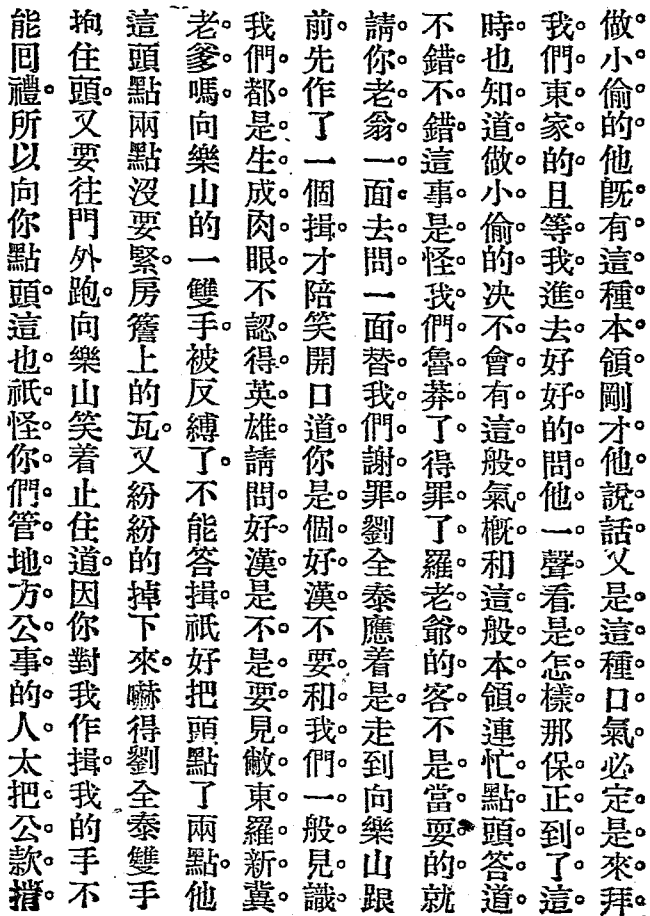 做小偷的他既有這種本領剛才他說話又是這種口氣必定是來拜
我們東家的且等我進去好好的問他一聲看是怎樣那保正到了這
時也知道做小偷的决不會有這般氣概和這般本領連忙點頭答道
不錯不錯這事是怪我們魯莽了得罪了羅老爺的客不是當耍的就
請你老翁一面去問一面替我們謝罪劉全泰應着是。走到向樂山跟
前。先作了一個揖。才陪笑開口道。你是個好漢不要和我們一般見識
我們都是生成肉眼不認得英雄請問好漢是不是要見敝東羅新冀
老爹嗎。向樂山的一雙手。被反縛了。不能答揖。祇好把頭點了兩點。他
這頭點兩點沒要緊。房簷上的瓦。又紛紛的掉下來。嚇得劉全泰雙手
抱住頭。又要往門外跑。向樂山笑着止住道。因你對我作揖。我的手不
能回禮。所以向你點頭。這也祇怪你們管地方公事的人太把公款揹